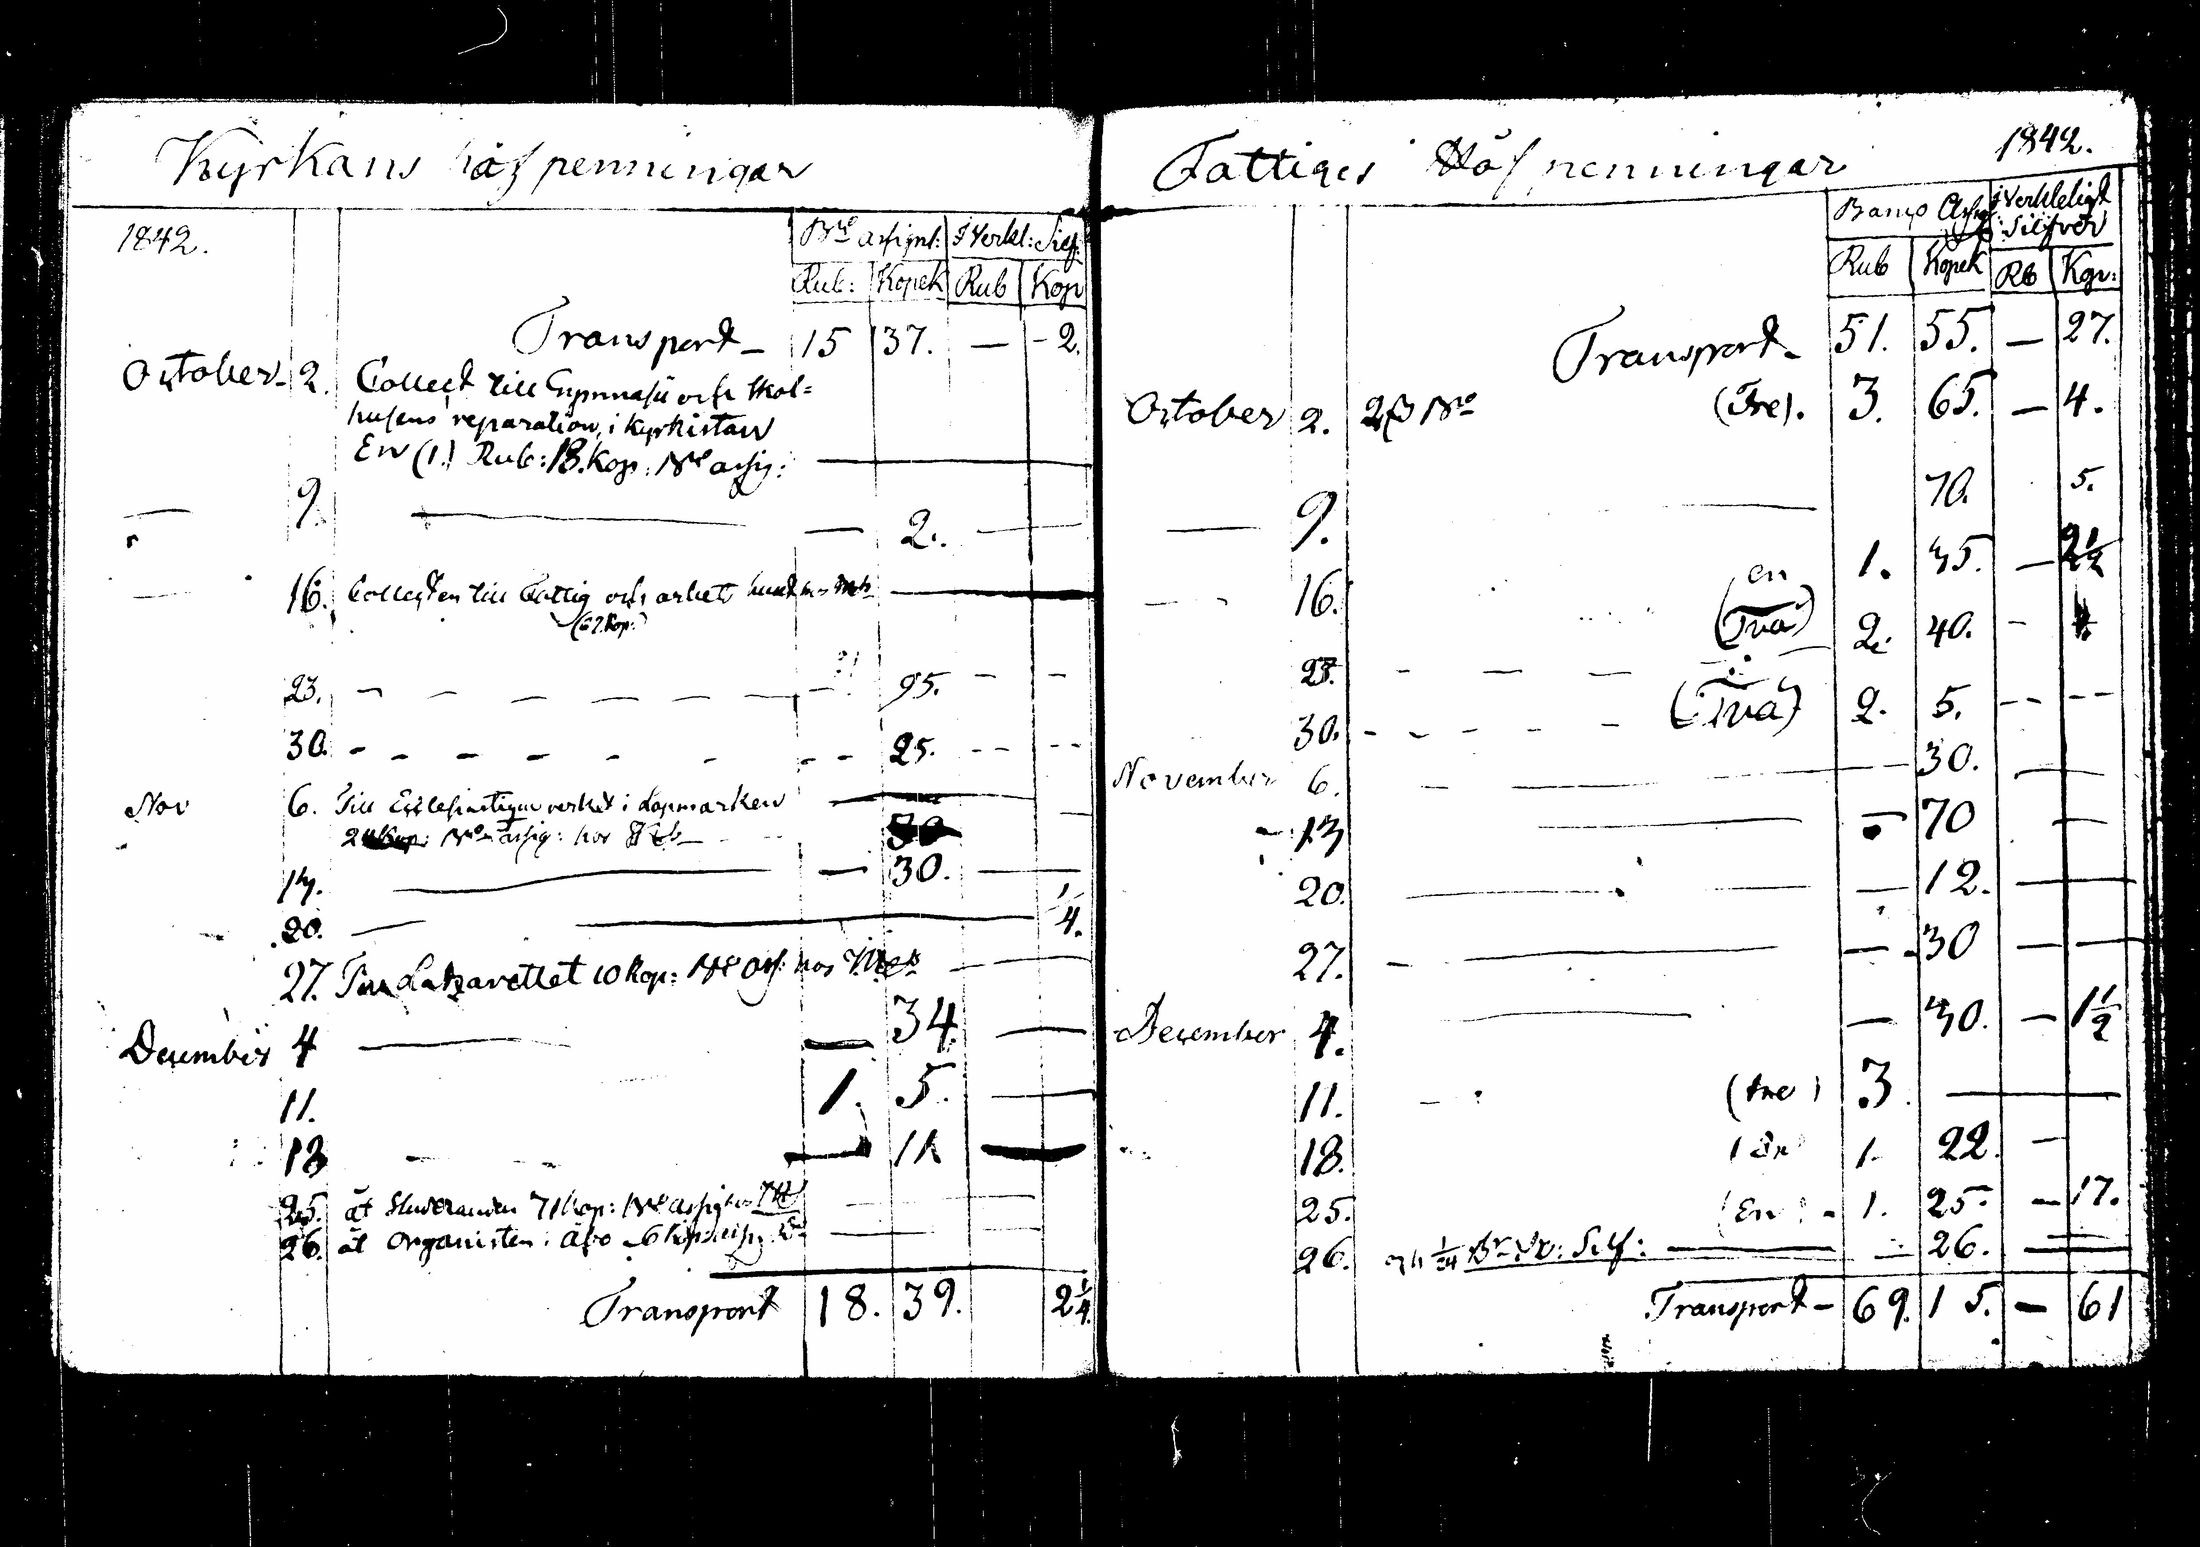 Kyrkans håfpenningar
1842. Bco assignt: I Verkl: Silf:
Rub: Kopek Rub Kop
Transport 15 37. — - 2.
October 2. Collect till Gymnasii och Skol=
husens reparation, i Kyrkistan
En (1.) Rub: 13. Kop: Bco assig:
— 9. — — 2. — —
— 16. Collecten till Fattig och arbets
(62 Kop:)
23. — — — — — — 95. - -
30. - - - - - - - 25. - - - -
Nov 6. Till Ecclesiastique verket i Lapmarken —
Bco assig: hos
13. — — 30. —
20. — — 1/4.
27. Lazarettet 10 Kop: Bco ass: hos
December 4 — — 34. —
11. 1. 5. —
18 - - — 11 —
25. åt Studeranden 71 kop: Bco assig hos — —
26. åt Organisten i Åbo 6 Kop: — —
Transport 18. 39. 2 1/4.
Fattiges Håfpenningar 1842.
Banco Assig I Verkleligt
Silfver
Rub Kopek Rb Kop:
Transport 51. 55. — 27.
October 2. Bco (Tre). 3. 65. — 4.
— 9. — 70. 5.
16. (en 1. 35. — 2 1/2
(Två) 2. 40. -
23. - - -
30. - - - - - (Två) 2. 5. - - - -
November 6. - — — 30. — —
13 — — 70 —
20. — — 12. —
27. - — — 30 — —
December 4. — — 30. — 1 1/2
11. - (tre) 3. —
18. (En) 1. 22. —
25. (En) - 1. 25. — 17.
26. 1/24 Silf: — — 26. —
Transport - 69. 15. — 61